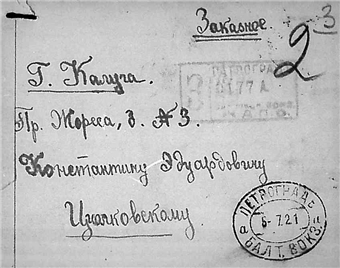 Заказное.
3
2
ПЕТРОГРАД
Г. Калуга.
Пр. Жореса, д. № 3.
Константину Эдуардовичу
Циолковскому.
ПЕТРОГРАД
5-7.21
БАЛТ. ВОКЗ.